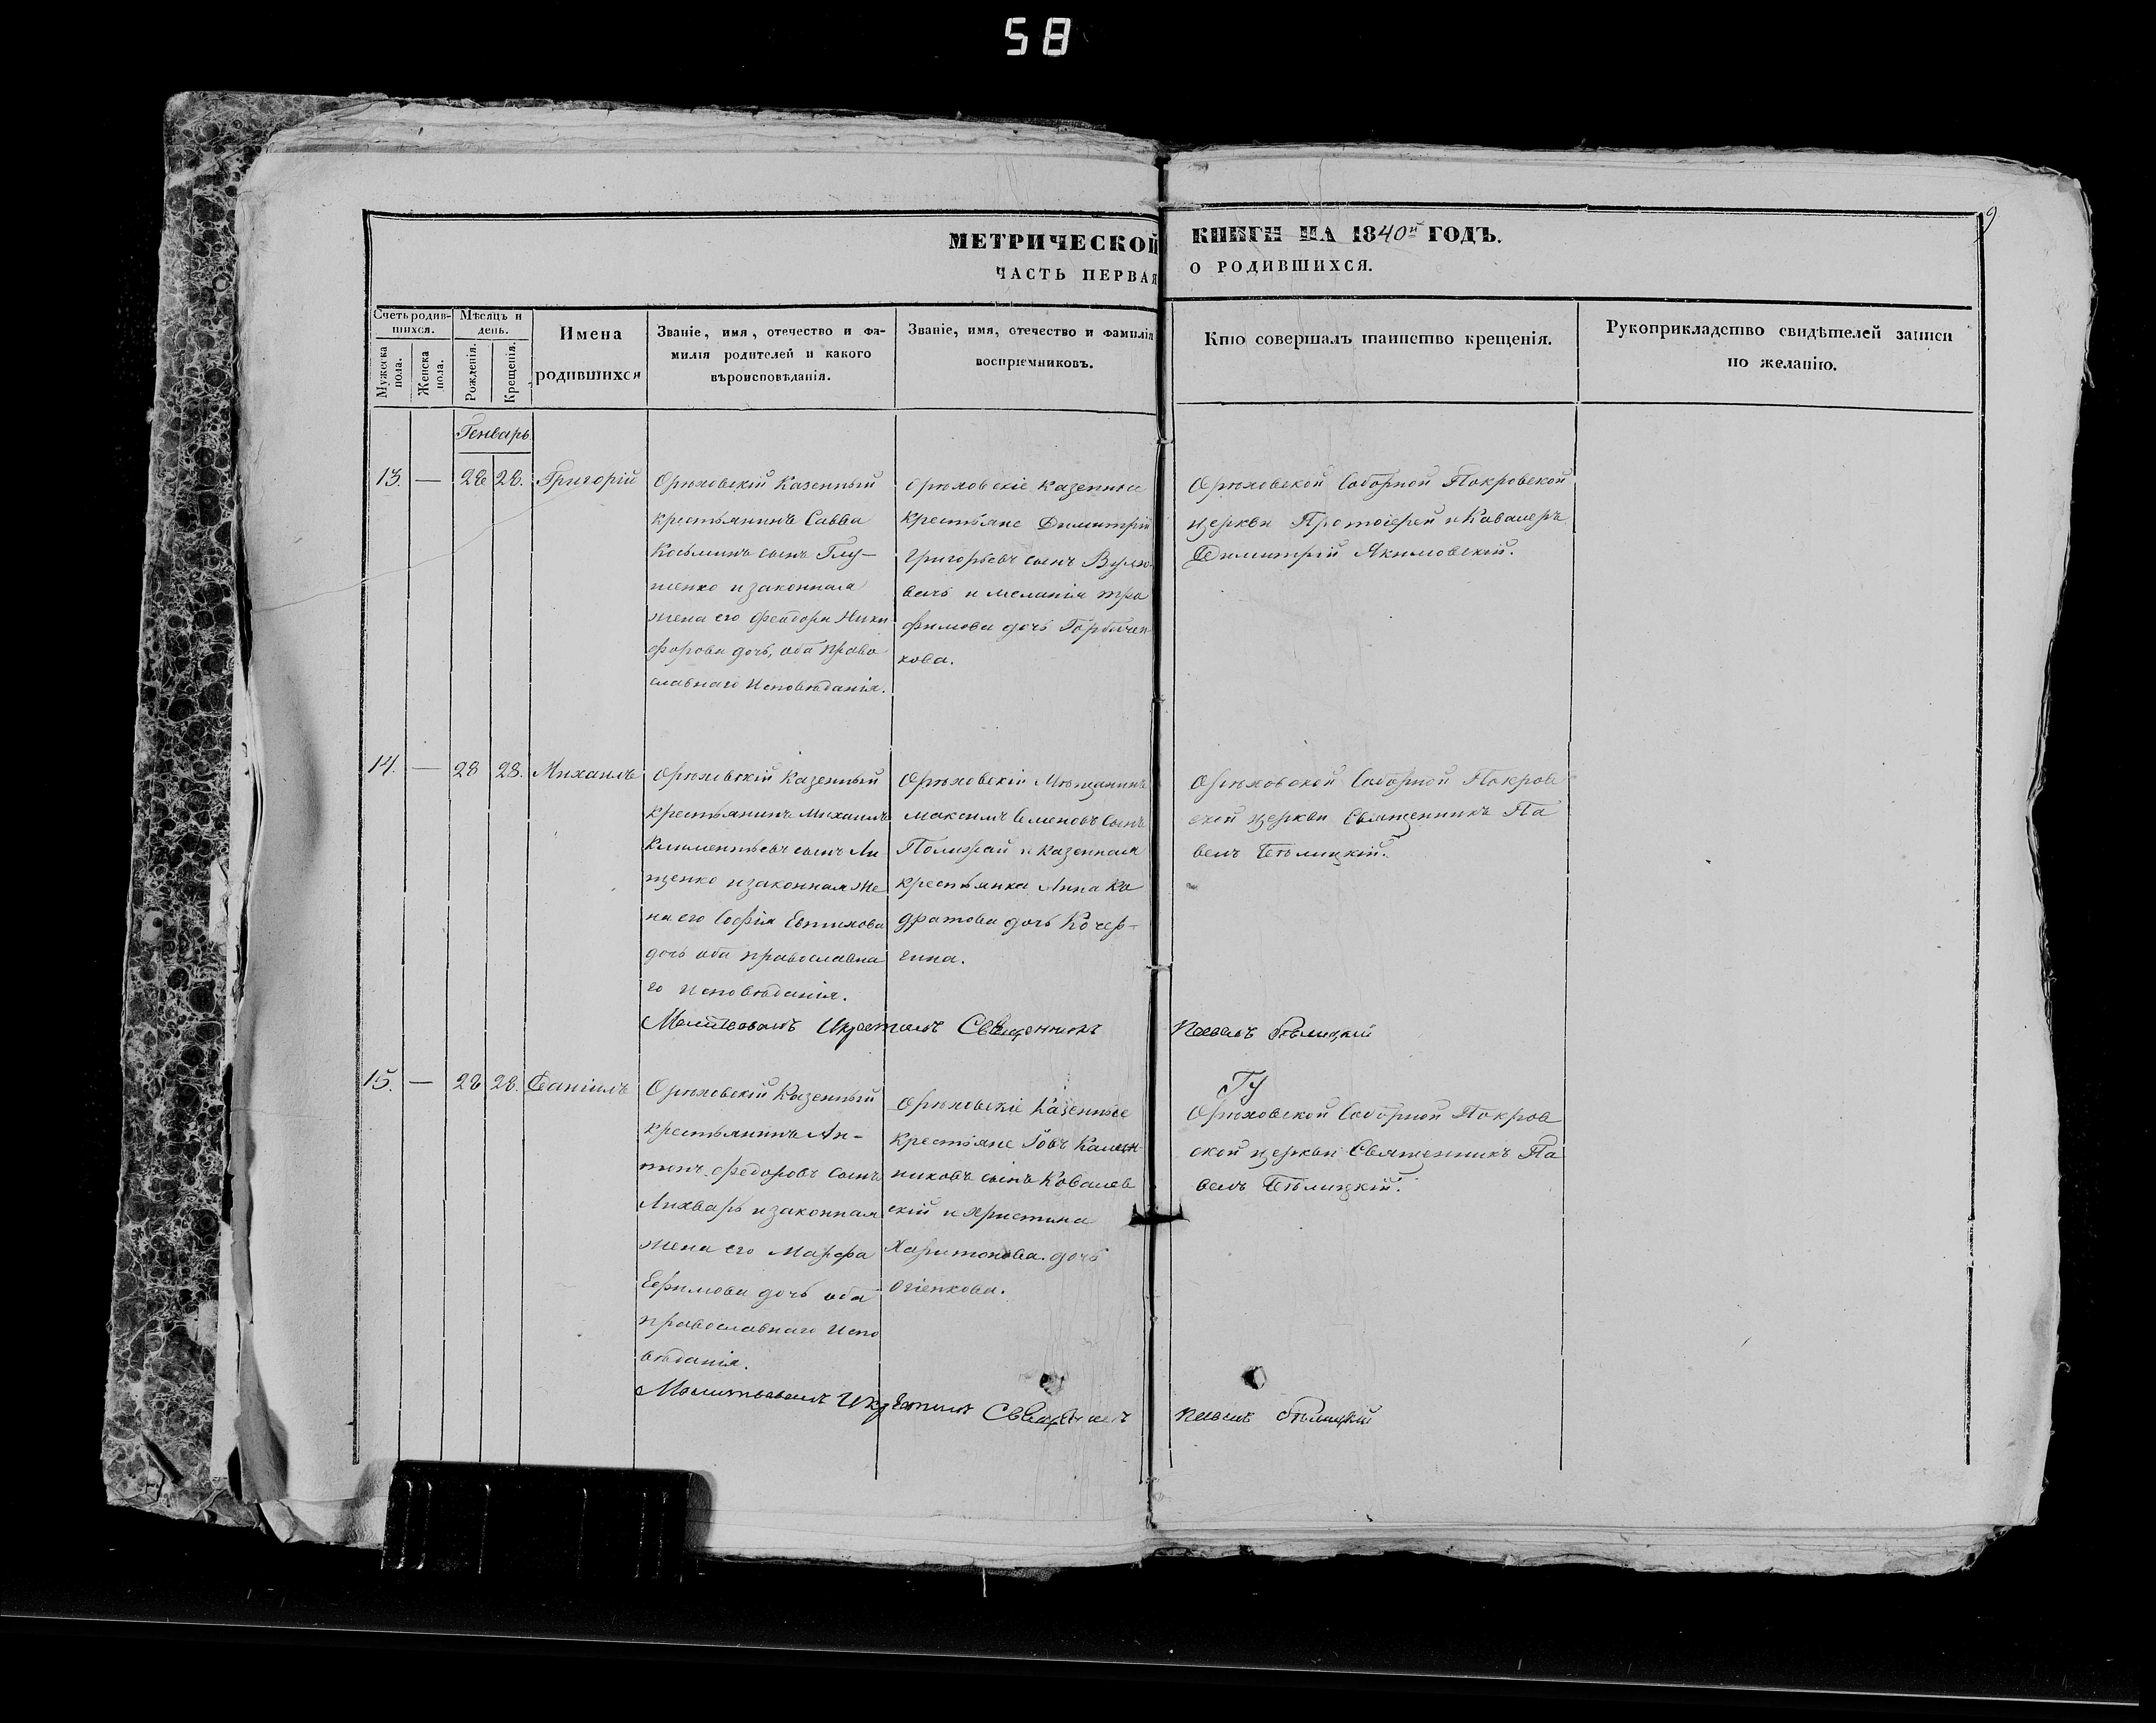 58
9
МЕТРИЧЕСКОЙ КНИГИ НА 1840й ГОДЪ.
ЧАСТЬ ПЕРВАЯ О РОДИВШИХСЯ.
Счетъ родив-
шихся.
Мужеска пола.
Женска пола.
Мѣсяцъ и
день.
Рожденія.
Крещенія.
Имена
родившихся
Званіе, имя, отечество и фа-
милія родителей и какого
вѣроисповѣданія.
Званіе, имя, отечество и фамилія
воспріемниковъ.
Кто совершалъ таинство крещенія.
Рукоприкладство свидѣтелей записи
по желанію.
Генварь
13. — 28 28. Григорій
Орѣховскій Казенный
крестьянинъ Савва
Косьминъ сынъ Глу-
шенко и законная
жена его Феодора Ники
форова дочь, оба право
славнаго Исповѣданія.
Орѣховскіе казенные
крестьяне Димитрій
Григорьевъ сынъ
и Меланія Тро
фимова дочь Горбачен
кова.
Орѣховской Соборной Покровской
церкви Протоіерей и Кавалеръ
Димитрій Якимовскій.
14. — 28 28. Михаилъ
Орѣховскій казенный
крестьянинъ Михаилъ
Климентьевъ сынъ Ли
щенко и законная же
на его Софія Евтихова
дочь оба православна
го Исповѣданія.
Орѣховскій Мѣщанинъ
Максимъ Семеновъ сынъ
и казенная
крестьянка Анна Ко
дратова дочь Кочер-
гина.
Орѣховской Соборной Покров
ской церкви Священникъ Па
велъ Бѣлицкій.
Молитвовалъ И крестилъ Священникъ Павелъ Бѣлицкій
15. — 28 28. Даніилъ
Орѣховскій Казенный
крестьянинъ Ан-
тонъ Федоровъ сынъ
Лихварь и законная
жена его Марфа
Ефимова дочь оба
православнаго Испо
вѣданія.
Орѣховскіе Казенные
крестьяне Іовъ Калин-
никовъ сынъ Ковалев
скій и Христина
Харитонова дочь
Огіенкова.
Орѣховской Соборной Покров
ской церкви Священникъ Па
велъ Бѣлицкій.
Молитвовалъ И крестилъ Священникъ Павелъ Бѣлицкій